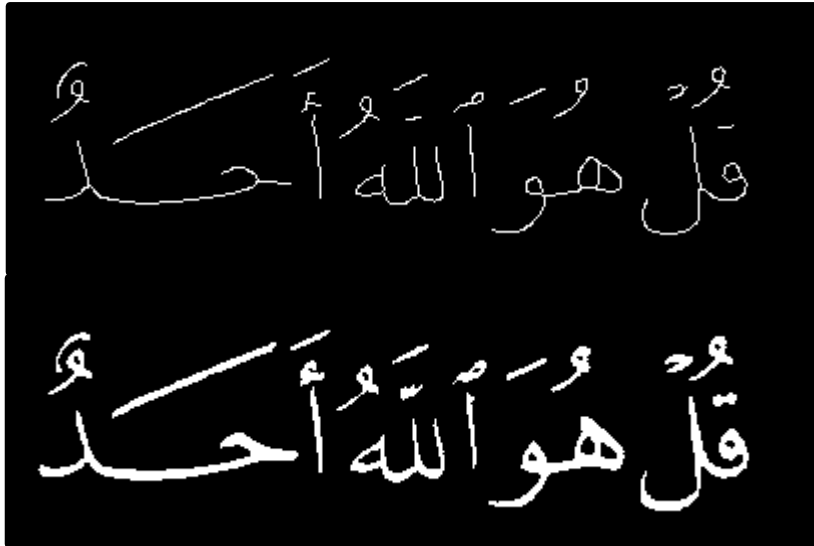 قُلۡ هُوَ ٱللَّهُ أَحَدٌ
قُلۡ هُوَ ٱللَّهُ أَحَدٌ